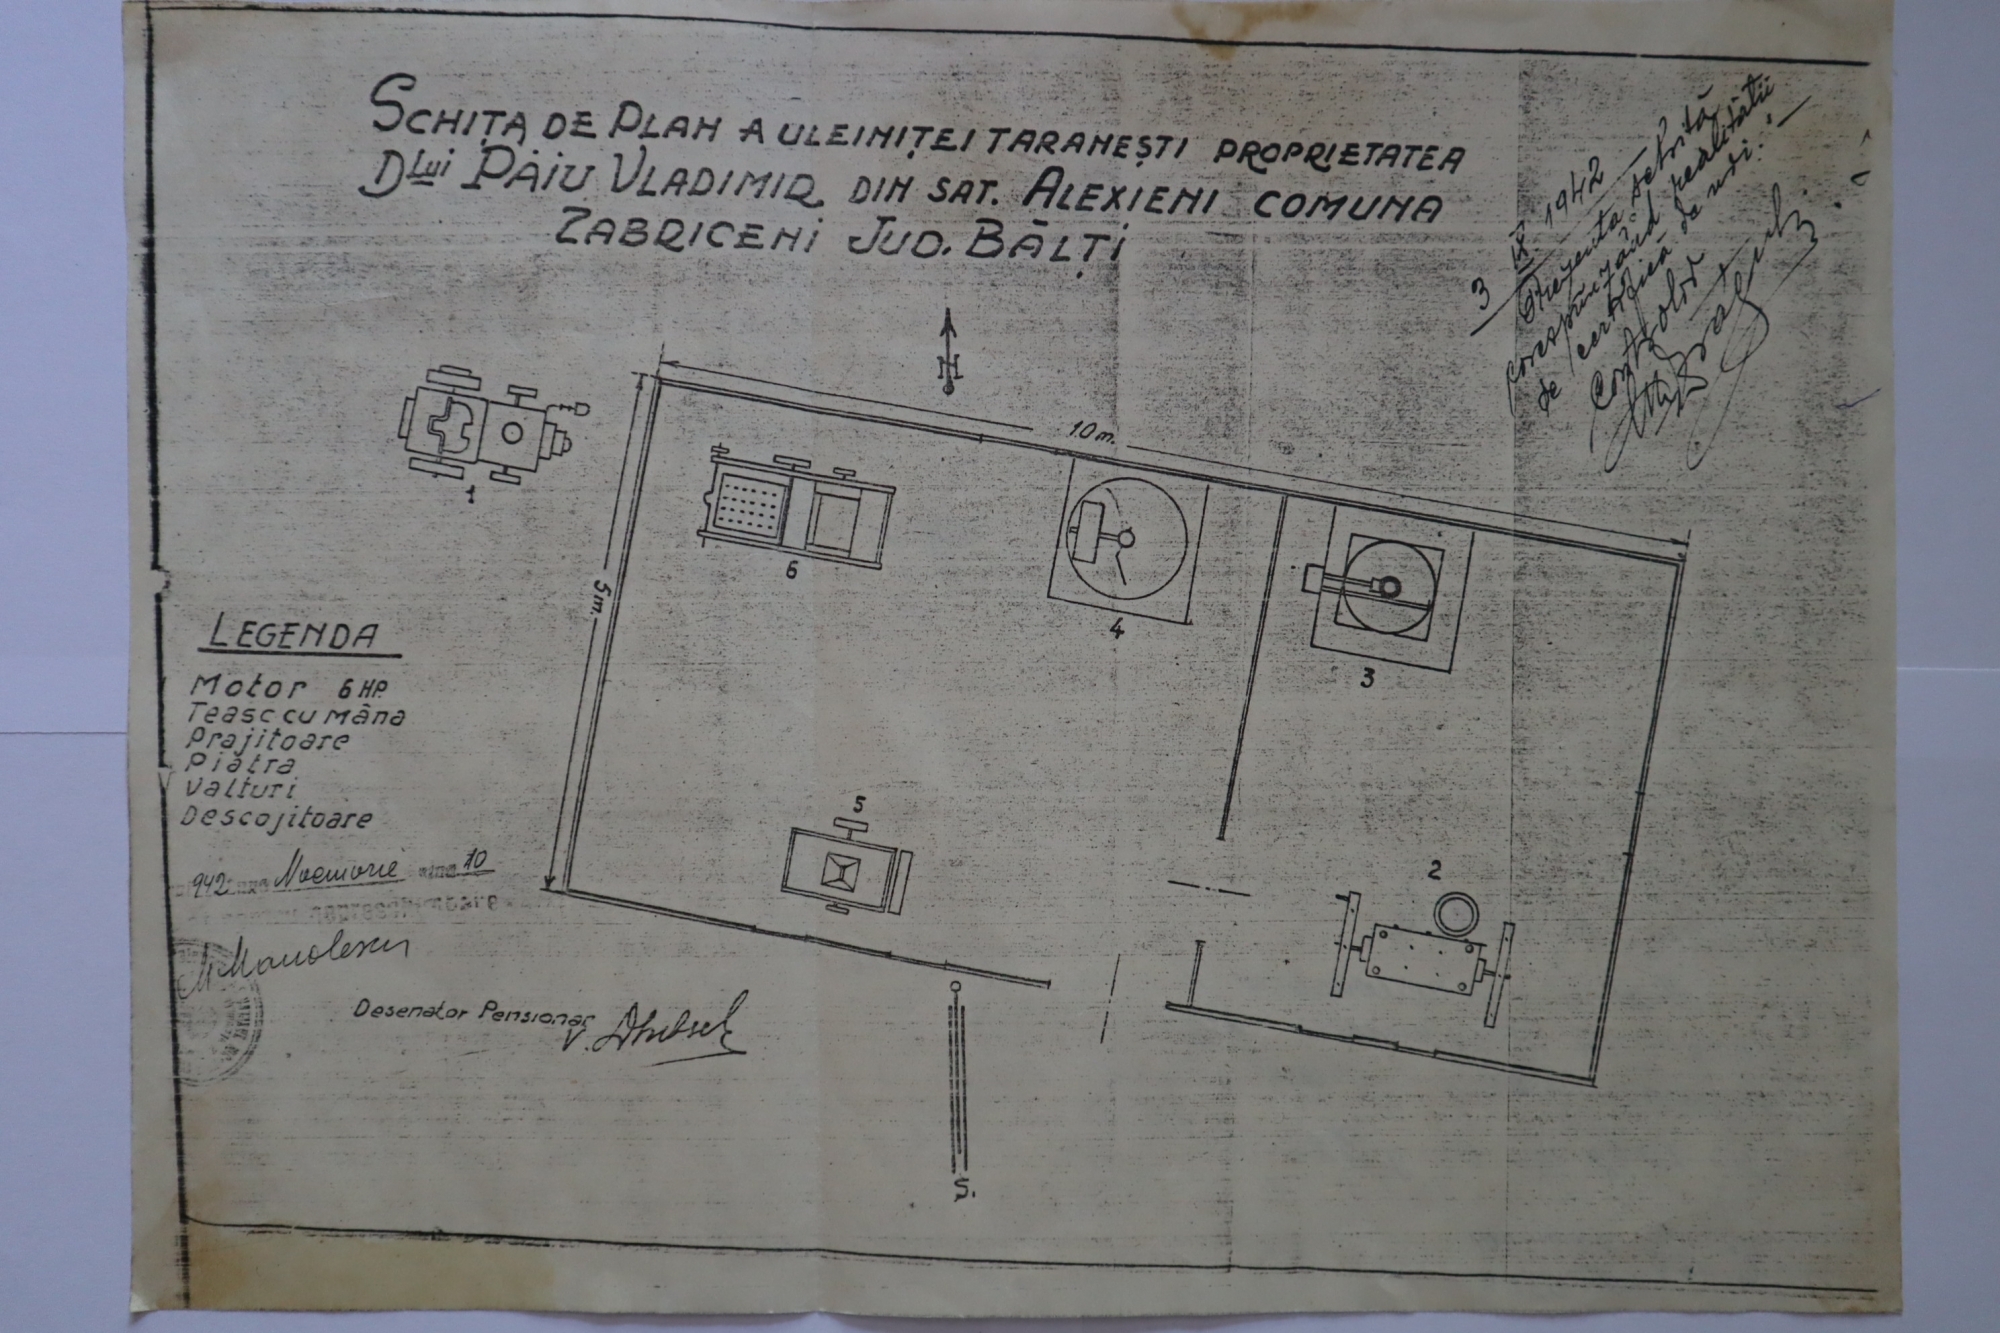 SCHIȚA DE PLAN A ULEINIȚEI TARANEȘTI PROPRIETATEA
Dlui PĂIU VLADIMIR DIN SAT. ALEXIENI COMUNA
ZABRICENI JUD. BĂLȚI
3 IX. 1942
Prezenta schită
corespinzând realității
de certifică de noi:
Controlor
N
10 m.
5 m.
1
6
4
3
5
2
LEGENDA
Motor 6 HP.
Teasc cu mâna
Prajitoare
Piatra
Valturi
Descojitoare
942 Noemvrie 10
Manolescu
Desenator Pensionar
V.
S.